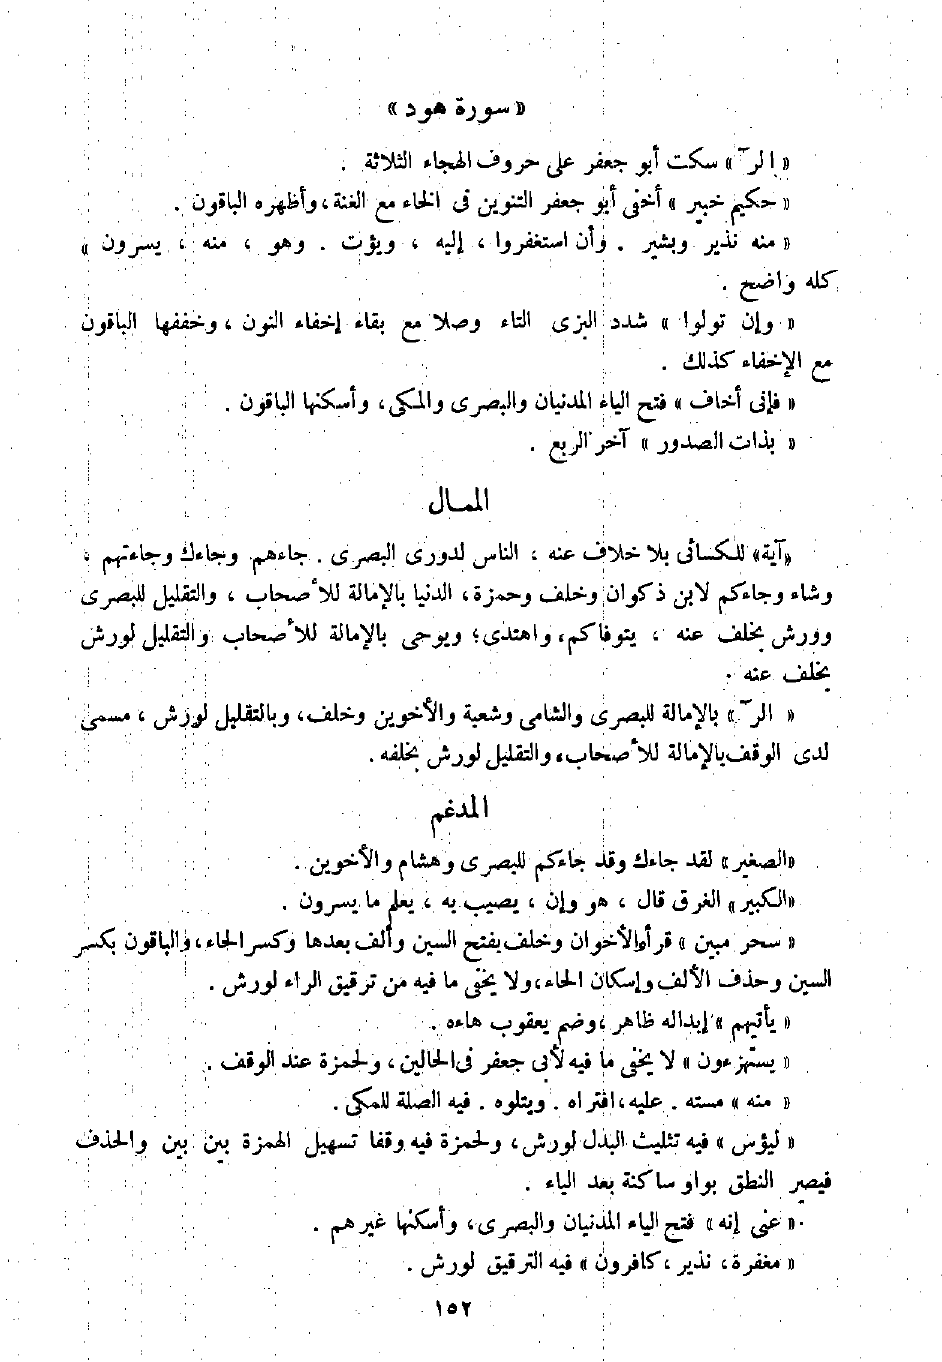 « سورة هود »
« الرآ » سكت أبو جعفر على حروف الهجاء الثلاثة .
« حكيم خبير » أخفى أبو جعفر التنوين فى الخاء مع الغنة ، وأظهره الباقون .
« منه نذير وبشير . وأن استغفروا ، إليه ، ويؤت . وهو ، منه ، يسرون »
كله واضح .
« وإن تولوا » شدد البزى التاء وصلا مع بقاء إخفاء النون ، وخففها الباقون
مع الإخفاء كذلك .
« فإنى أخاف » فتح الياء المدنيان والبصرى والمكى ، وأسكنها الباقون .
« بذات الصدور » آخر الربع .
الممـال
«آية» للكسائى بلا خلاف عنه ، الناس لدورى البصرى . جاءهم وجاءك وجاءتهم ،
وشاء وجاءكم لابن ذكوان وخلف وحمزة ، الدنيا بالإمالة للأصحاب ، والتقليل للبصرى
وورش بخلف عنه ، يتوفاكم ، واهتدى ؛ ويوحى بالإمالة للأصحاب والتقليل لورش
بخلف عنه .
« الرآ » بالإمالة للبصرى والشامى وشعبة والأخوين وخلف ، وبالتقليل لورش ، مسمى
لدى الوقف بالإمالة للأصحاب ، والتقليل لورش بخلفه .
المدغم
«الصغير» لقد جاءك وقد جاءكم للبصرى وهشام والأخوين .
«الكبير» الغرق قال ، هو وإن ، يصيب به ، يعلم ما يسرون .
« سحر مبين » قرأ الأخوان وخلف بفتح السين وألف بعدها وكسر الحاء ، والباقون بكسر
السين وحذف الألف وإسكان الحاء ، ولا يخفى ما فيه من ترقيق الراء لورش .
« يأتيهم » إبداله ظاهر ، وضم يعقوب هاءه .
« يستهزءون » لا يخفى ما فيه لأبى جعفر فى الحالين ، ولحمزة عند الوقف .
« منه » مسته . عليه ، افتراه . ويتلوه . فيه الصلة للمكى .
« ليؤس » فيه تثليث البدل لورش ، ولحمزة فيه وقفا تسهيل الهمزة بين بين والحذف
فيصير النطق بواو ساكنة بعد الياء .
« عنى إنه » فتح الياء المدنيان والبصرى ، وأسكنها غيرهم .
« مغفرة ، نذير ، كافرون » فيه الترقيق لورش .
١٥٢